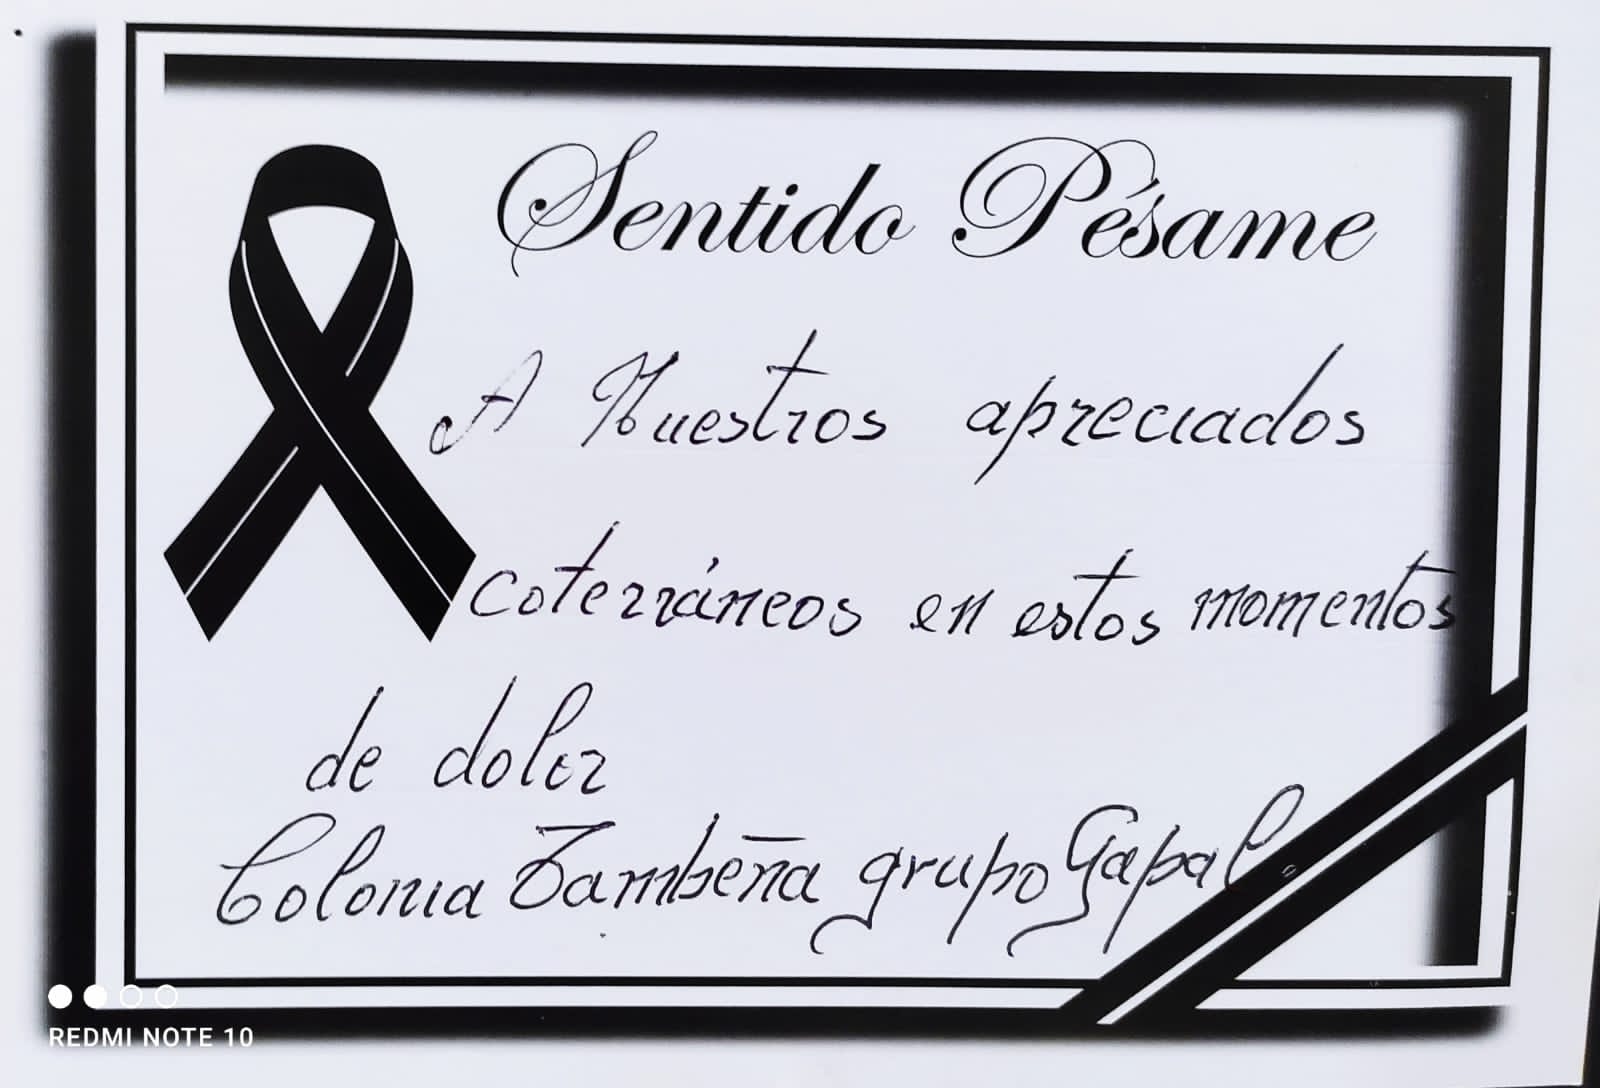 Sentido Pésame
A Nuestros apreciados
coterráneos en estos momentos
de dolor
Colonia Tambeña grupo Gapal
REDMI NOTE 10